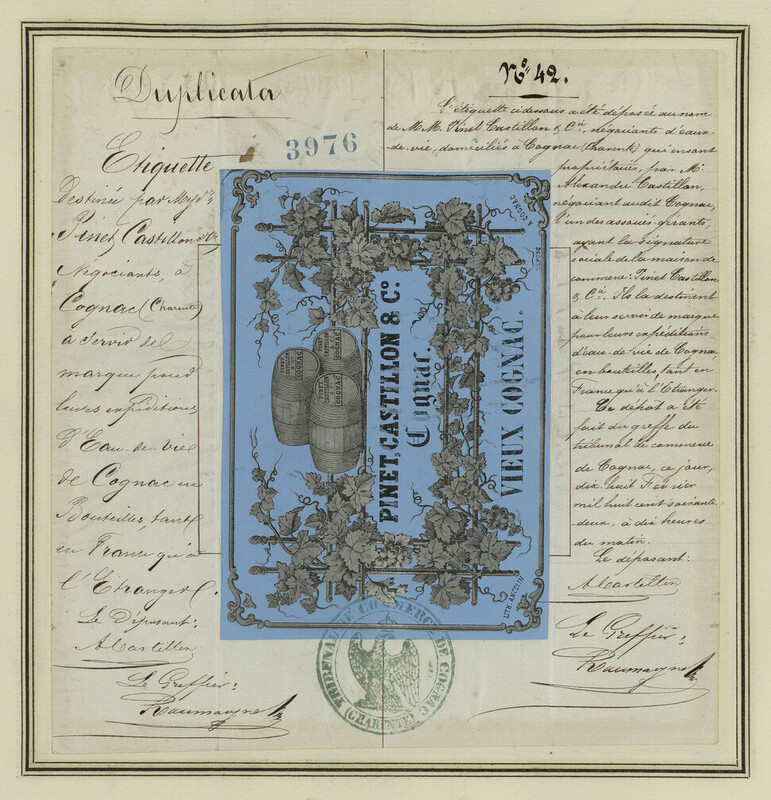 Duplicata
3976
Etiquette
Destinée par Mess.rs
Pinet Castillon & Cie
Négociants, à
Cognac (Charente)
à servir de
marque pour
leurs expéditions
d'Eau-de-vie
de Cognac en
Bouteilles, tant
en France qu'à
l'Etranger.
Le Déposant:
ACastillon
Le Greffier:
No. 42.
L'étiquette ci dessous a été déposée au nom
de M.M. Pinet Castillon & Cie, négociants d'eaux-
de-vie, domiciliés à Cognac (Charente) qui en sont
propriétaires, par Mr.
Alexandre Castillon,
négociant audit Cognac,
l'un des associés-gérants,
ayant la signature
sociale de la maison de
commerce: Pinet Castillon
& Cie. Ils la destinent
à leur servir de marque
pour leurs expéditions
d'eau-de-vie de Cognac
en bouteilles, tant en
France qu'à l'Etranger.
Ce dépôt a été
fait au greffe du
tribunal de commerce
de Cognac, ce jour,
dix huit Février
mil huit cent soixante-
deux, à dix heures
du matin.
Le déposant:
ACastillon
Le Greffier:
PINET, CASTILLON & Co.
Cognac.
VIEUX COGNAC.
PINET CASTILLON & Co COGNAC
PINET CASTILLON & Co COGNAC
PINET CASTILLON & Co COGNAC
A COGNAC
DÉPOSÉ
TRIBUNAL DE COMMERCE DE COGNAC
(CHARENTE)